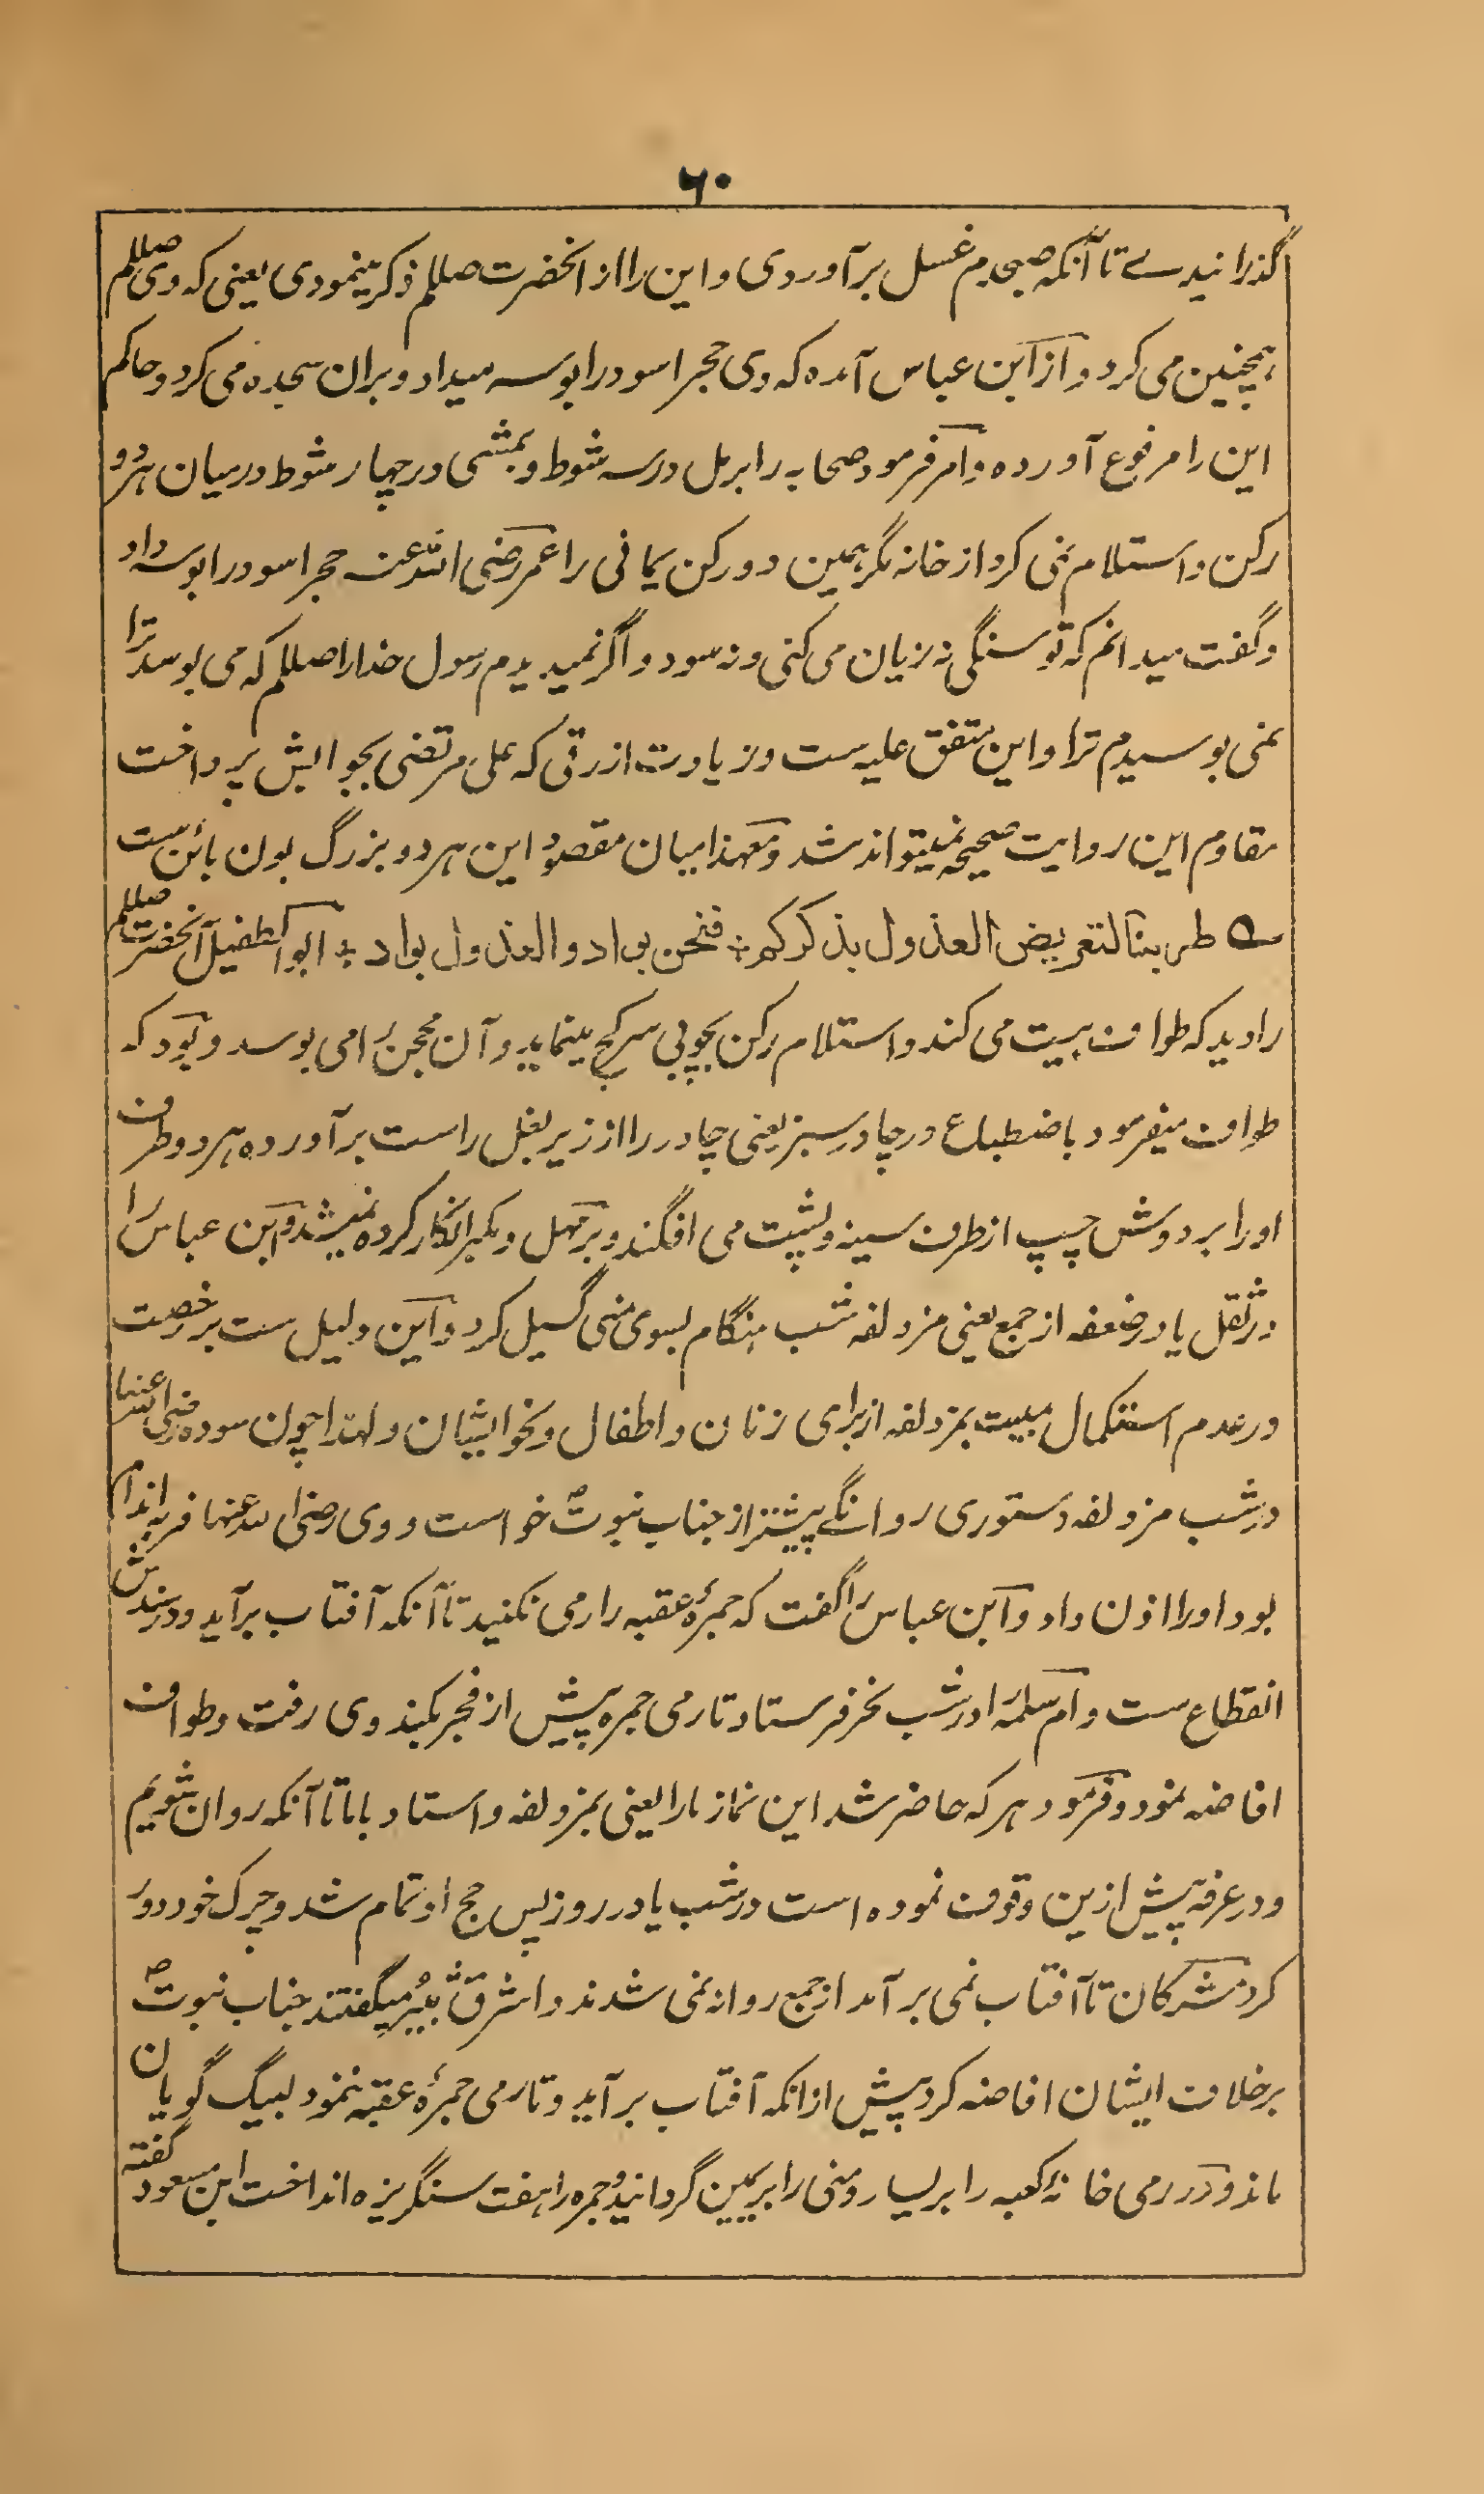 ۶۰
گذرانیدے تا آنکہ صبحدم غسل برآوردی و این را از آنحضرت صللم ذکر مینمودی یعنی که وی صللم
همچنین می کرد و از ابن عباس آمده که وی حجر اسود را بوسه میداد و بران سجده می کرد و حاکم
این را مرفوع آورده و امر فرمود صحابه را برمل در سه شوط و بمشی در چهار شوط در میان هر دو
رکن و استلام نمی کرد از خانه مگر همین دو رکن یمانی را عمر رضی الله عنه حجر اسود را بوسه داد
و گفت میدانم که تو سنگی نه زیان می کنی و نه سود و اگر نمیدیدم رسول خدا را صللم که می بوسد ترا
نمی بوسیدم ترا و این متفق علیه ست و زیادت ازرقی که علی مرتضی بجوابش پرداخت
مقاوم این روایت صحیحه نمیتواند شد و معهذا بیان مقصود این هر دو بزرگ بون بائن ست
طربنا لتعریض العذول بذکرکم ÷ فنحن بواد و العذول بواد ÷ ابو الطفیل آنحضرت صللم
را دید که طواف بیت می کند و استلام رکن بچوبی سر کج مینماید و آن محجن را می بوسد و بود که
طواف میفرمود باضطباع در چادر سبز یعنی چادر را از زیر بغل راست برآورده هر دو طرف
او را بر دوش چپ از طرف سینه و پشت می افگند و بر مهل و مکبر انکار کرده نمیشد و ابن عباس را
در ثقل یا در ضعفه از جمع یعنی مزدلفه شب هنگام بسوی منی گسیل کرد و این دلیل ست بر رخصت
در عدم استکمال مبیت بمزدلفه از برای زنان و اطفال و نحو ایشان و لهذا چون سوده رضی الله عنها
در شب مزدلفه دستوری روانگے پیشتر از جناب نبوت ص خواست و وی رضی الله عنها فربه اندام
بود او را اذن داد و ابن عباس را گفت که جمرۂ عقبه را رمی نکنید تا آنکه آفتاب برآید و در سندش
انقطاع ست و ام سلمه را در شب نحر فرستاد تا رمی جمره پیش از فجر بکند وی رفت و طواف
افاضه نمود و فرمود هر که حاضر شد این نماز ما را یعنی بمزدلفه و استاد با ما تا آنکه روان شویم
و در عرفه پیش ازین وقوف نموده است در شب یا در روز پس حج او تمام شد و چرک خود دور
کرد مشرکان تا آفتاب نمی برآمد از جمع روانه نمی شدند و اشرق ثبیر میگفتند جناب نبوت ص
برخلاف ایشان افاضه کرد پیش ازانکه آفتاب برآید و تا رمی جمرۂ عقبه ننمود لبیک گویان
ماند و در رمی خانۂ کعبه را بر یسار و منی را بر یمین گردانید و جمره را هفت سنگریزه انداخت ابن مسعود گفته